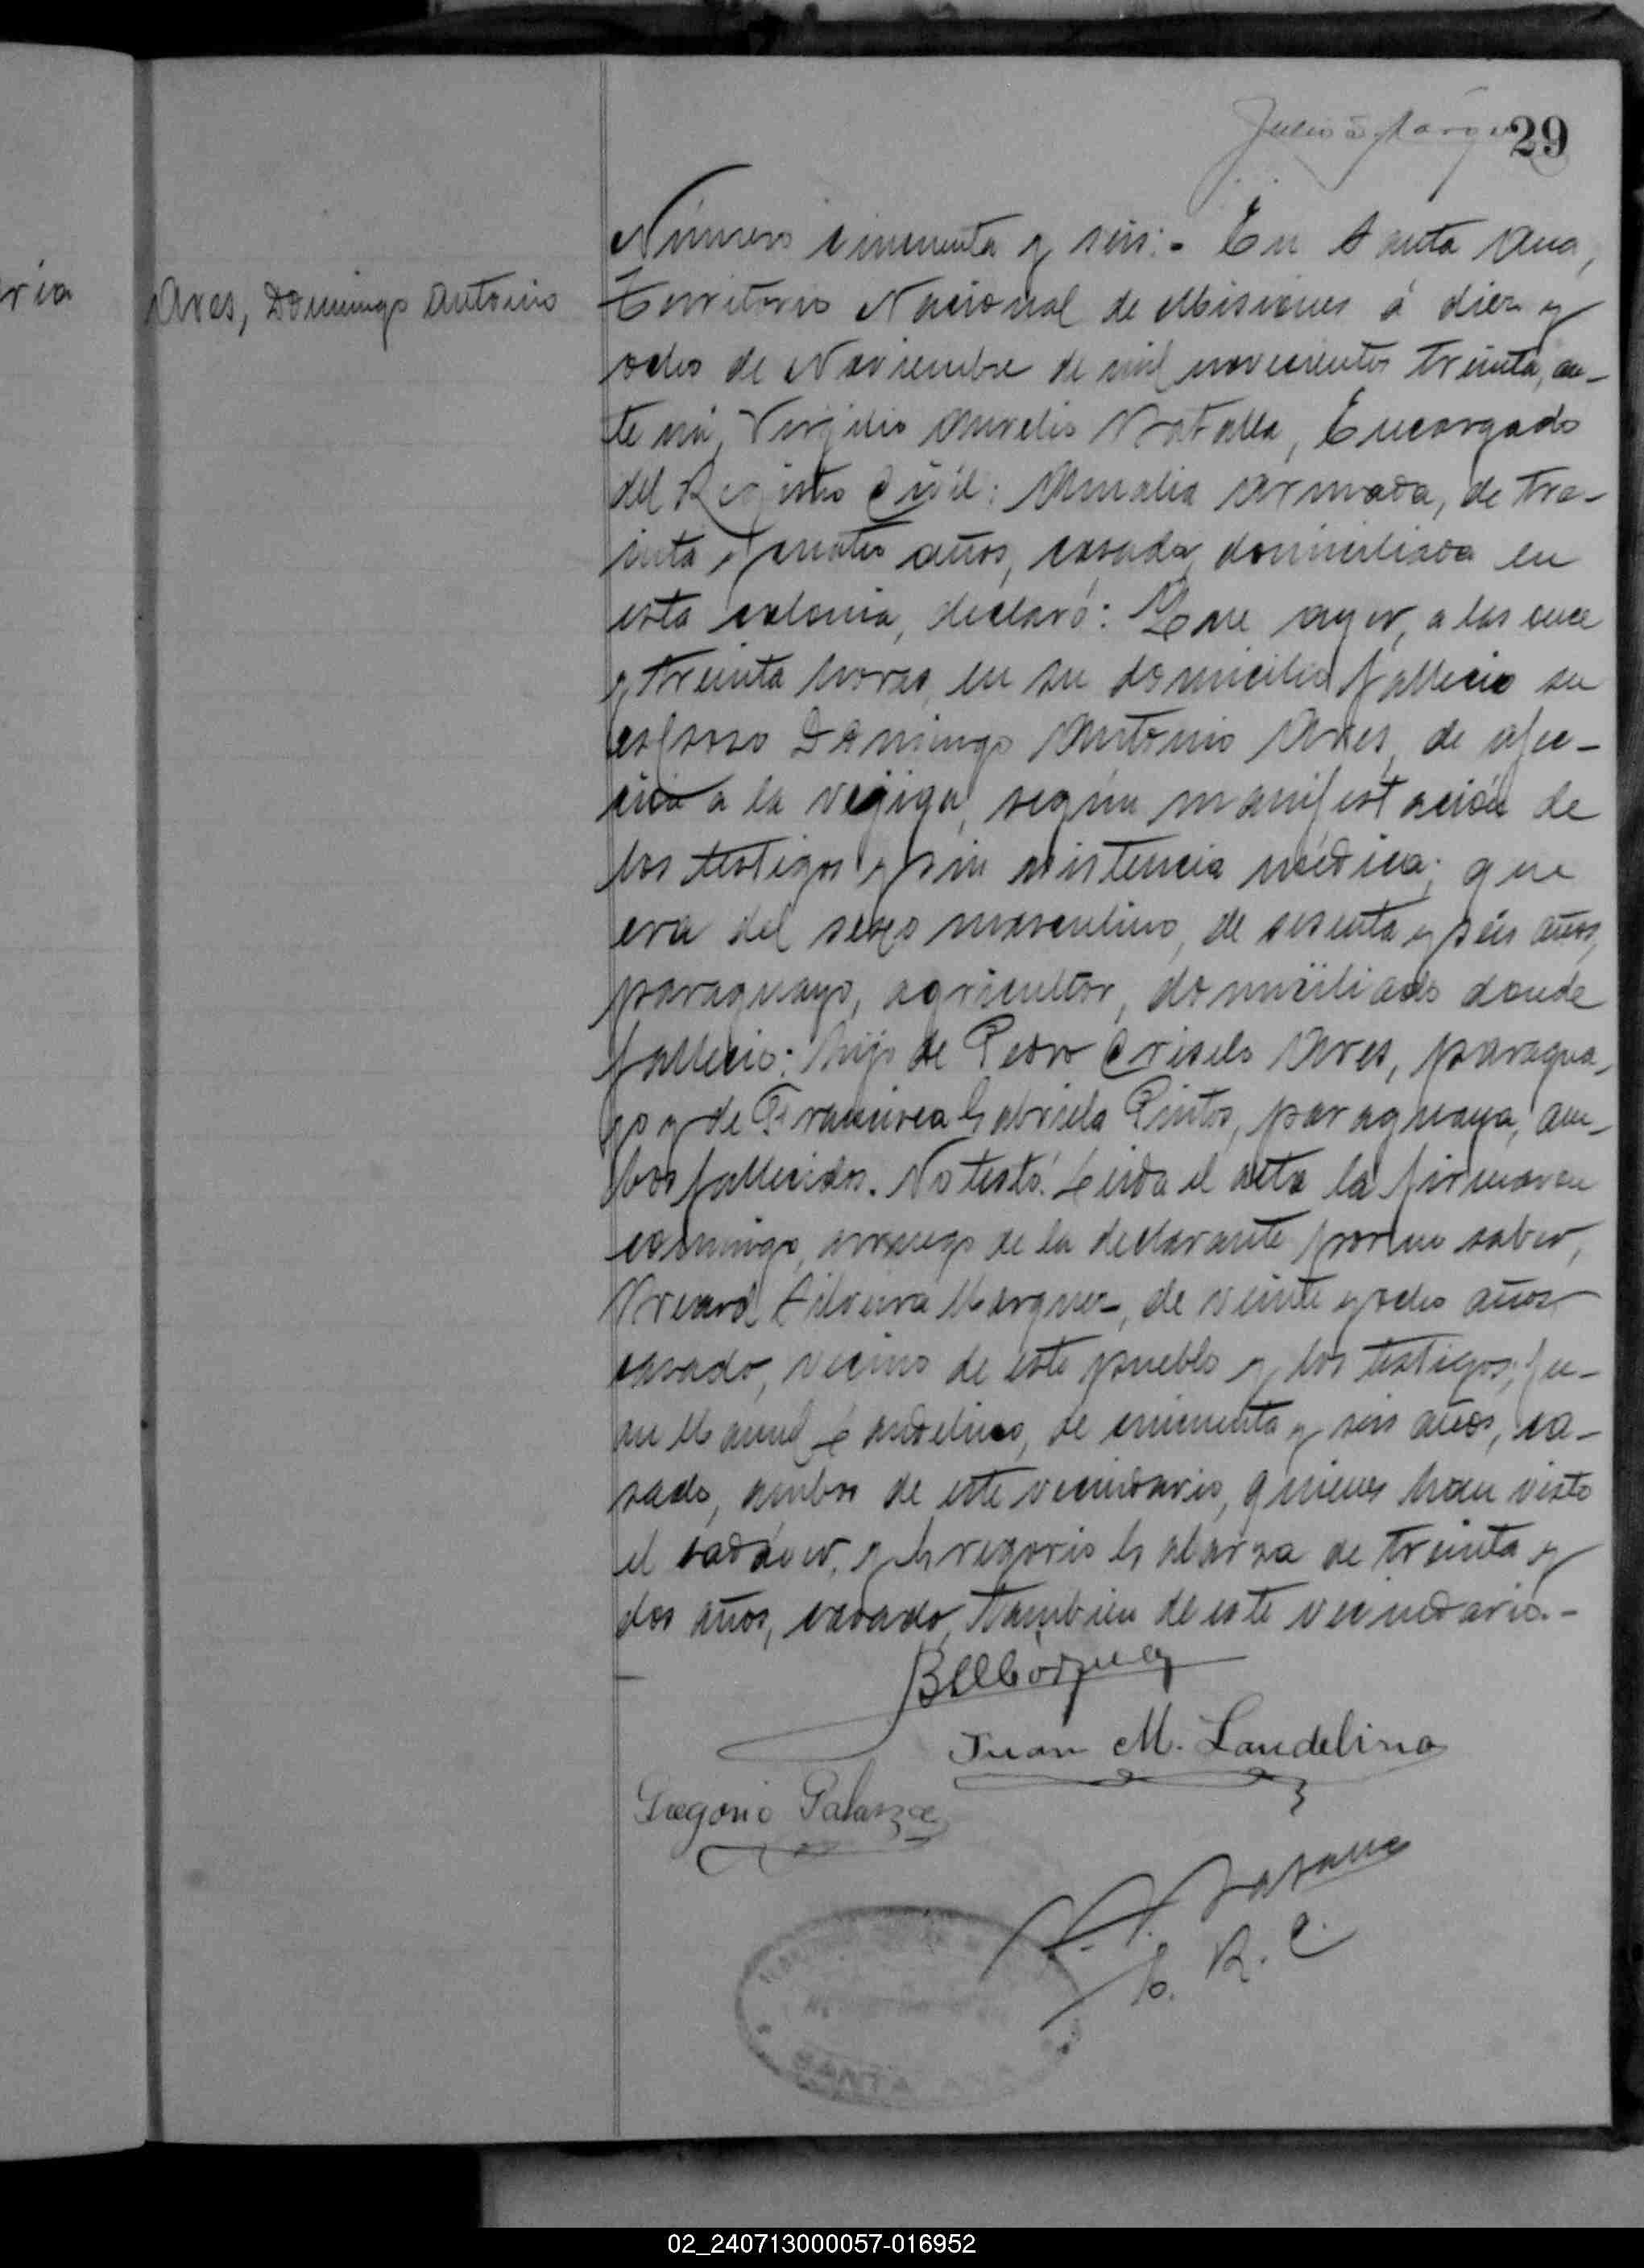 29
Número cincuenta y seis:- En Santa Ana,
ria
Ares, Domingo Antonio
Territorio Nacional de Misiones á diez y
ocho de Noviembre de mil novecientos treinta, an-
te mí, Virgilio Aurelio Batalla, Encargado
del Registro Civil: Amalia Armada, de tre-
inta y cuatro años, casada, domiciliada en
esta colonia, declaró: Que ayer, a las once
y treinta horas, en su domicilio falleció su
esposo Domingo Antonio Ares, de afec-
ción a la vejiga, según manifestación de
los testigos y sin asistencia médica; que
era del sexo masculino, de sesenta y seis años,
paraguayo, agricultor, domiciliado donde
falleció; hijo de Pedro Criselo Ares, paragua-
yo y de Francisca Gabriela Pintos, paraguaya, am-
bos fallecidos. No testó. Leida el acta la firmaron
conmigo, a ruego de la declarante por no saber,
Silveira Marquez, de veinte y ocho años
casado, vecino de este pueblo y los testigos; Ju-
an Manuel Landelino, de cincuenta y seis años, ca-
sado, ambos de este vecindario, quienes han visto
el cadáver, y Gregorio Galarza de treinta y
dos años, casado, tambien de este vecindario.-
Juan M. Landelino
Gregorio Galarza
E. R. C.
02_240713000057-016952